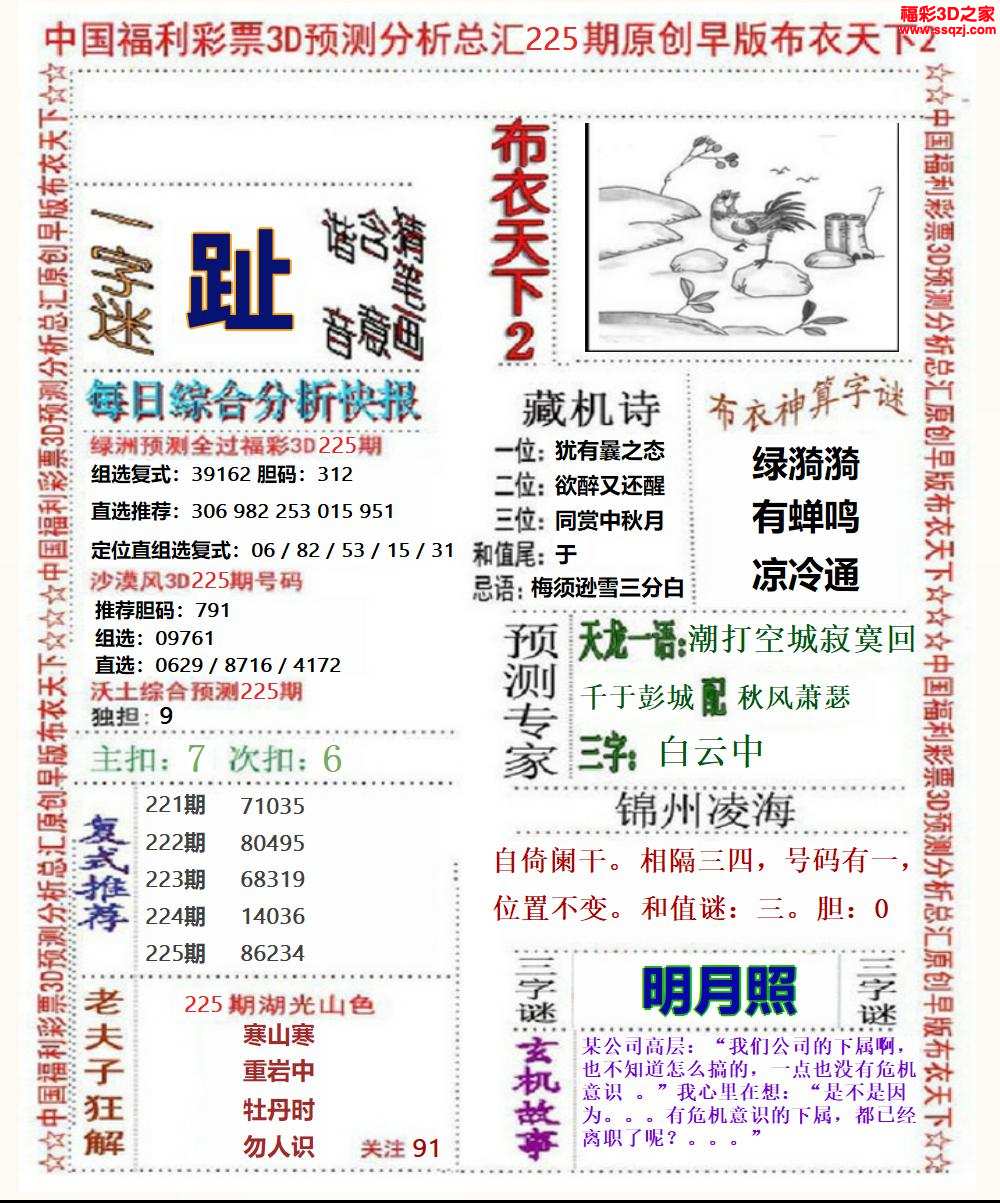 福彩3D之家
www.ssqzj.com
中国福利彩票3D预测分析总汇225期原创早版布衣天下2
☆☆中国福利彩票3D预测分析总汇原创早版布衣天下☆☆☆中国福利彩票3D预测分析总汇原创早版布衣天下☆☆
一字迷
趾
猜笔画
含意
指音
布衣天下2
每日综合分析快报
绿洲预测全过福彩3D225期
组选复式：39162 胆码：312
直选推荐：306 982 253 015 951
定位直组选复式：06 / 82 / 53 / 15 / 31
沙漠风3D225期号码
推荐胆码：791
组选：09761
直选：0629 / 8716 / 4172
沃土综合预测225期
独担：9
主扣：7 次扣：6
复式推荐
221期 71035
222期 80495
223期 68319
224期 14036
225期 86234
老夫子狂解
225期湖光山色
寒山寒
重岩中
牡丹时
勿人识
关注 91
藏机诗
一位：犹有曩之态
二位：欲醉又还醒
三位：同赏中秋月
和值尾：于
忌语：梅须逊雪三分白
布衣神算字谜
绿漪漪
有蝉鸣
凉冷通
预测专家
天龙一语：潮打空城寂寞回
千于彭城配秋风萧瑟
三字：白云中
锦州凌海
自倚阑干。相隔三四，号码有一，
位置不变。和值谜：三。胆：0
三字谜
明月照
三字谜
玄机故事
某公司高层：“我们公司的下属啊，
也不知道怎么搞的，一点也没有危机
意识 。”我心里在想：“是不是因
为。。。有危机意识的下属，都已经
离职了呢？。。。”
☆☆中国福利彩票3D预测分析总汇原创早版布衣天下☆☆☆中国福利彩票3D预测分析总汇原创早版布衣天下☆☆